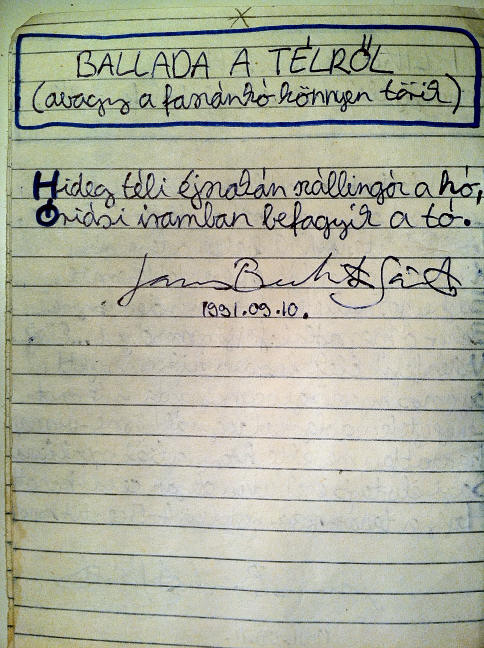 X
BALLADA A TÉLRŐL
(avagy a faszánkó könnyen törik)
Hideg téli éjszakán szállingózik a hó,
Óriási iramban befagyik a tó.
1991.09.10.